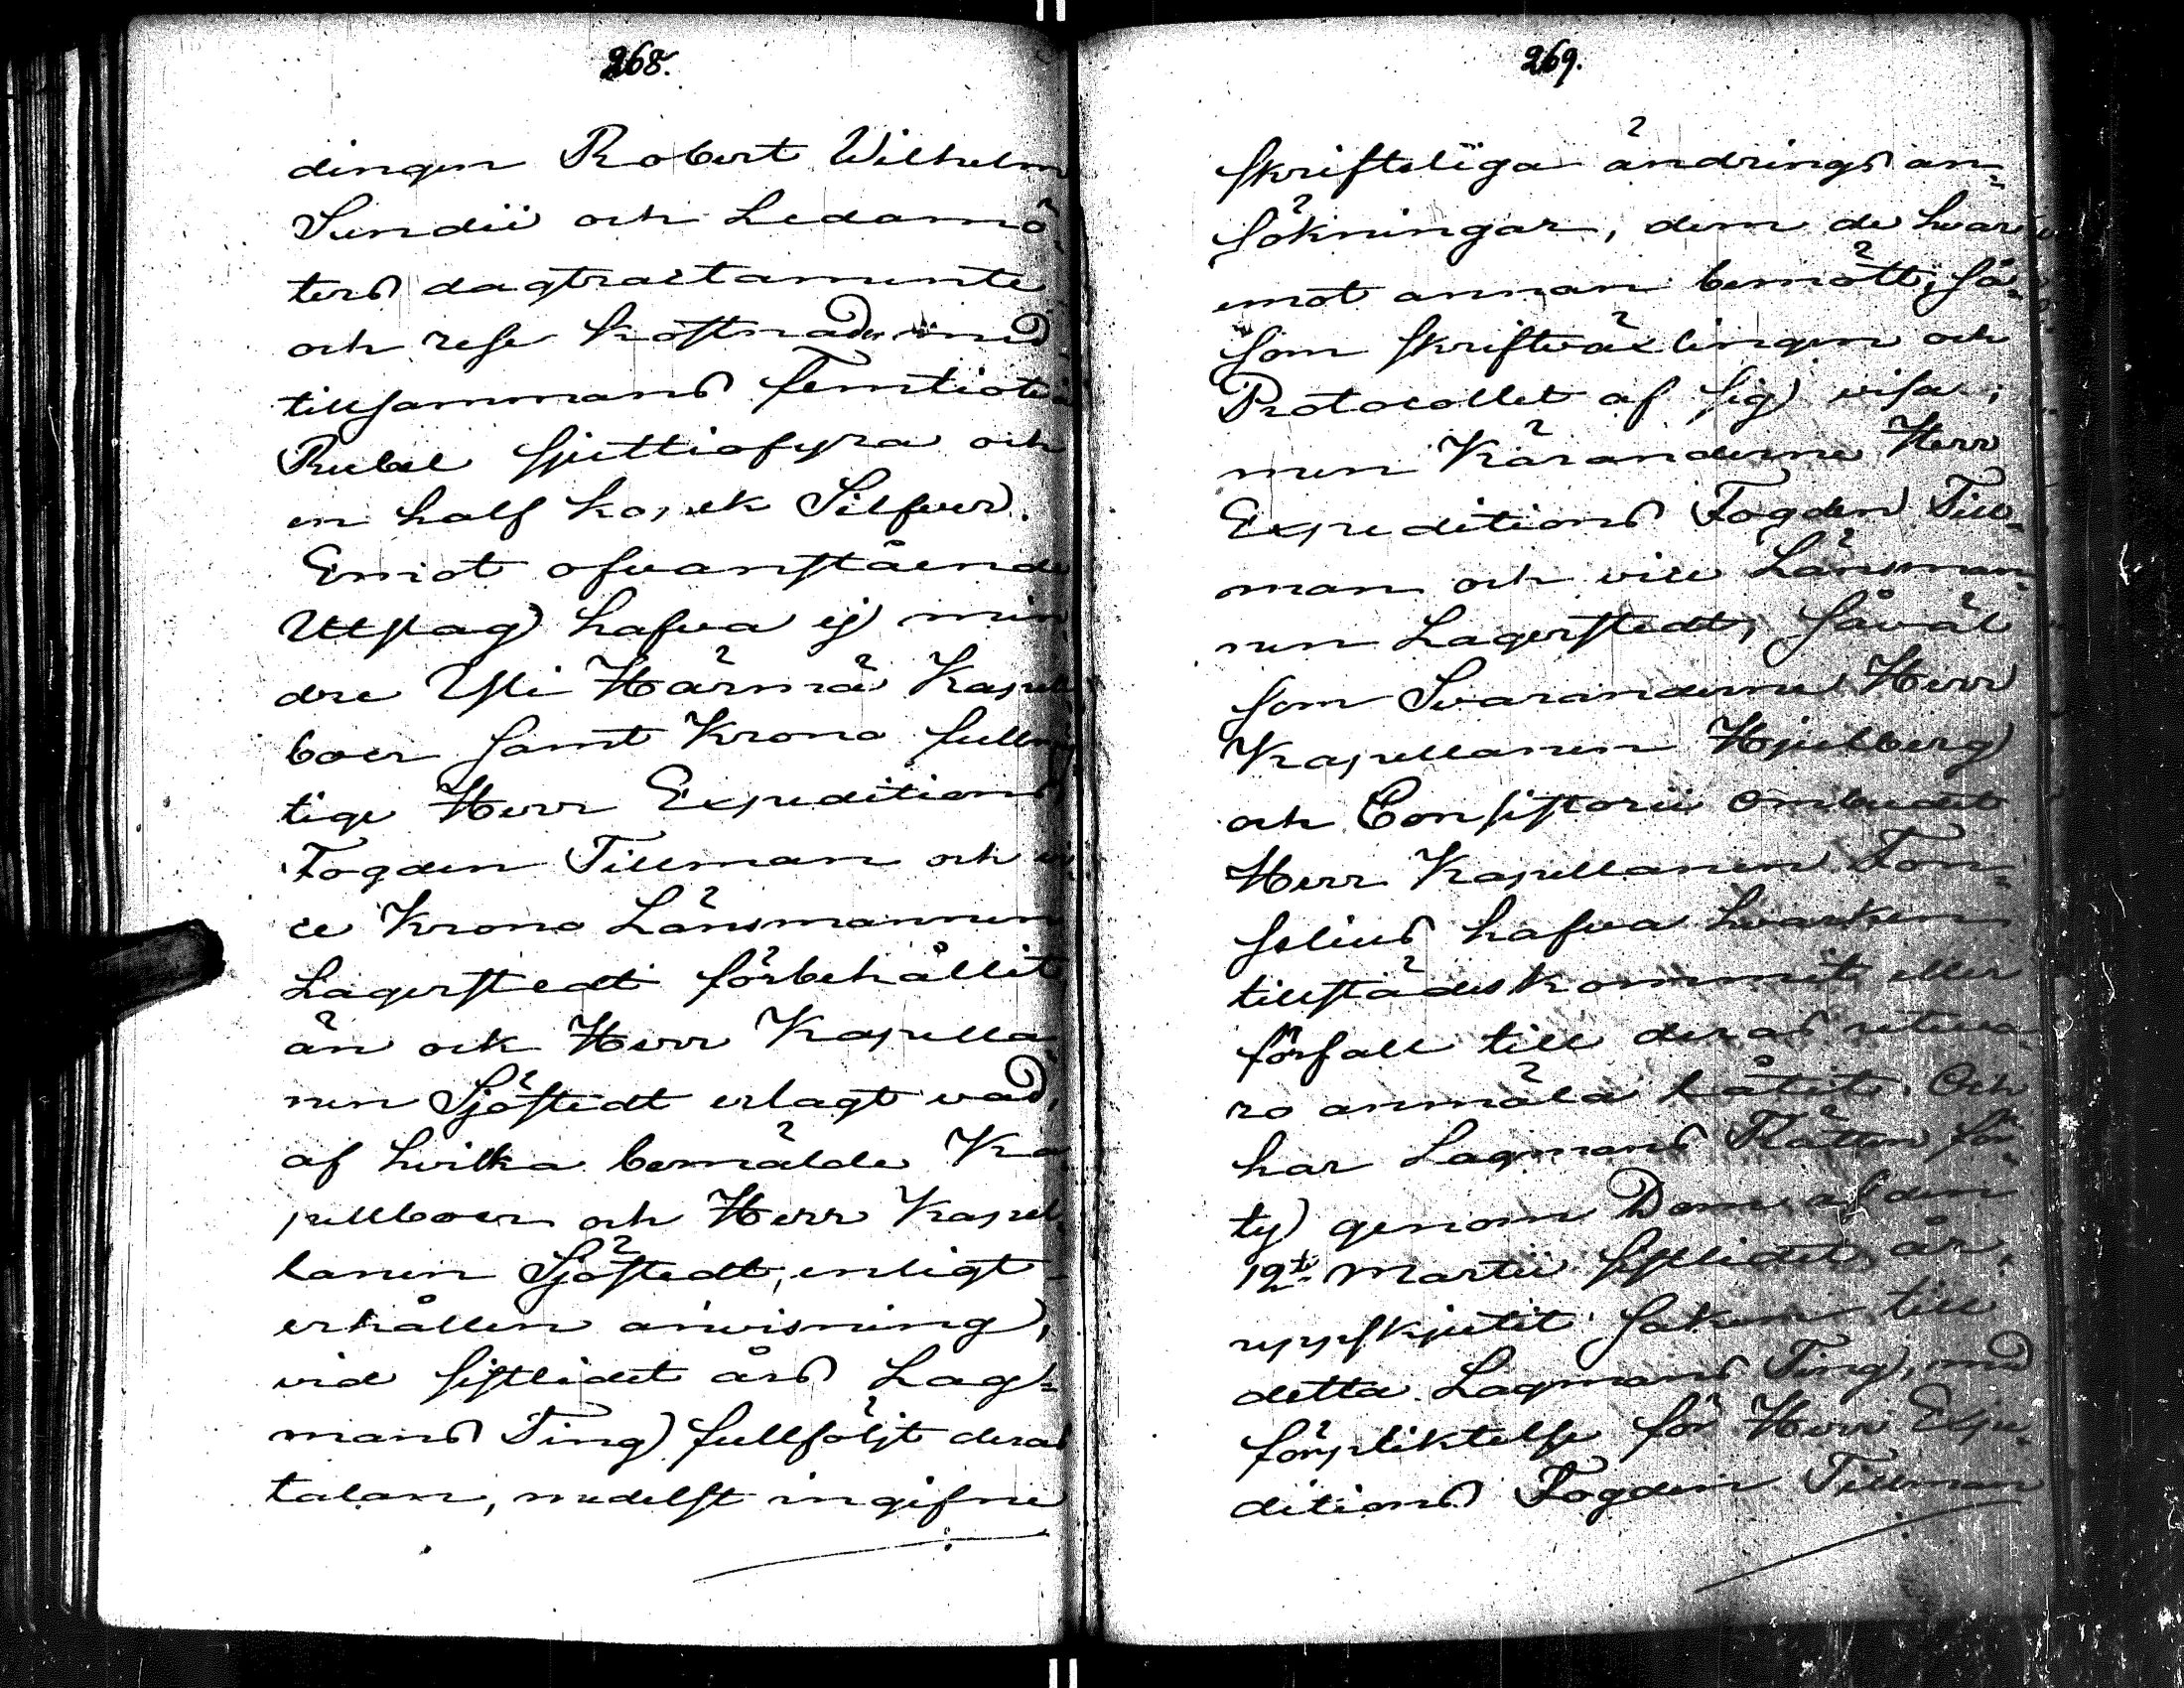 268.
dingen Robert Wilhelm
Sundii och Ledamö¬
ters dagtractamente
och rese kostnader med
tillsammans Femtiotvå
Rubel sjuttiofyra och
en half kopek Silfver.
Emot ofvanstående
Utslag hafva ej min
dre Ylli Härmä Kapell
boer samt Krono fullmäg
tige Herr Expeditions
Fogden Tillman och vi
ce Krono Länsmannen
Lagerstedt förbehållit
än ock Herr Kapella¬
nen Sjöstedt erlagt vad,
af hvilka bemälde Ka
pellboer och Herr Kapel¬
lanen Sjöstedt, enligt
erhållen anvisning,
vid sistlidet års Lag¬
mans Ting fullföljt deras
talan, medelst ingifne
269.
skrifteliga ändrings an¬
sökningar, dem de hvar
emot annan bemött, så¬
som skriftväxlingen och
Protocollet af sig visa;
men Käranderne Herr
Expeditions Fogden Till¬
man och vice Länsman¬
nen Lagerstedt, såväl
som Svaranderne Herr
Kapellanen Hjulberg
och Consistorii Ombudet
Herr Kapellanen Fon¬
selius hafva hvarken
tillstädeskommit eller
förfall till deras uteva¬
ro anmäla låtit. Och
har Lagmans Rätten för¬
ty genom Dom af den
19de Martii sistlidet år,
uppskjutit saken till
detta Lagmans Ting, med
förpliktelse för Herr Expe¬
ditions Fogden Tillman